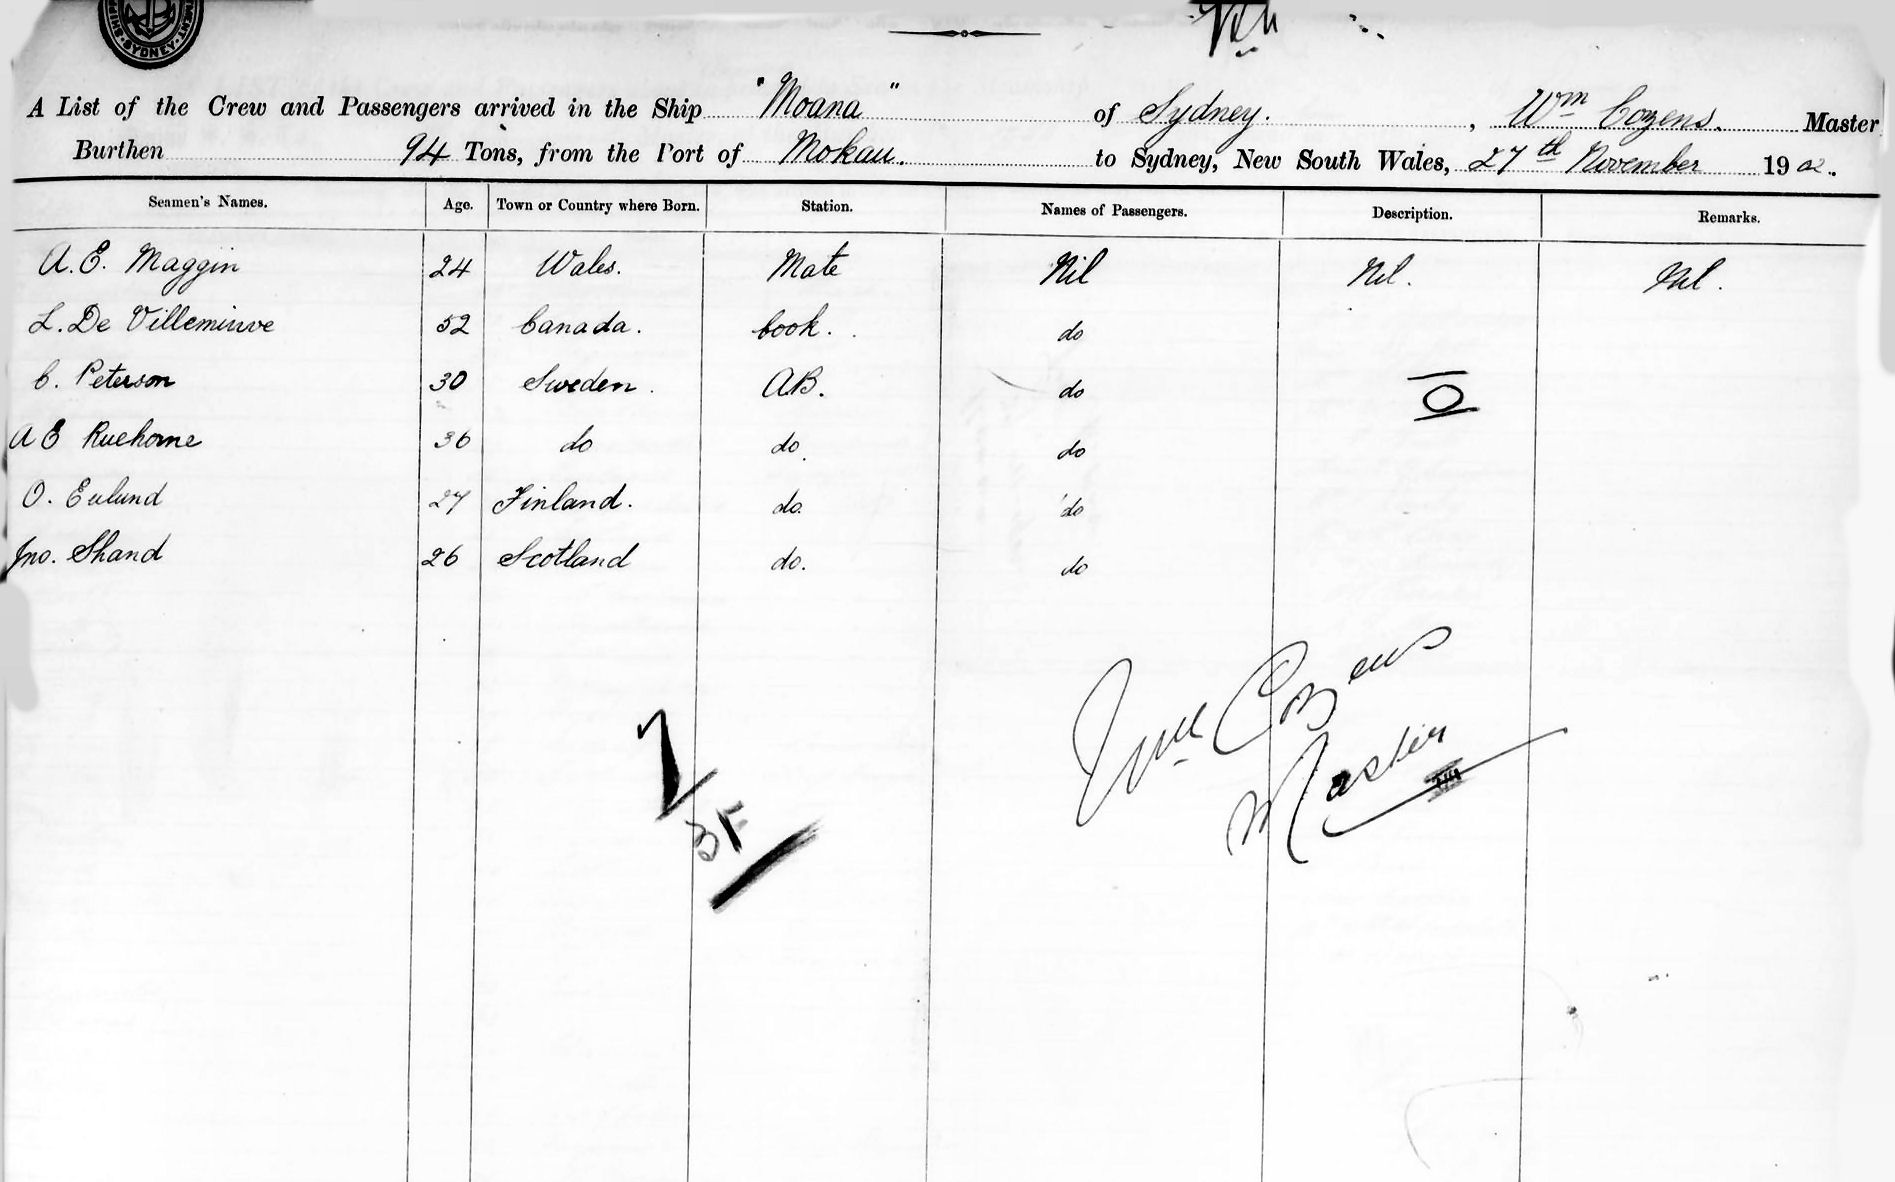 SYDNEY
A List of the Crew and Passengers arrived in the Ship "Moana" of Sydney. , Wm Cozens. Master
Burthen 94 Tons, from the Port of Mokau. to Sydney, New South Wales, 27th November 1902.
Seamen's Names. Age. Town or Country where Born. Station. Names of Passengers. Description. Remarks.
A. E. Maggin 24 Wales. Mate Nil Nil. Nil.
L. De Villeminve 52 Canada. Cook. do
C. Peterson 30 Sweden. AB. do
A E Ruehorne 36 do do. do
O. Eulund 27 Finland. do. do
Jno. Shand 26 Scotland do. do
O
Wm Cozens
Master
7
3F